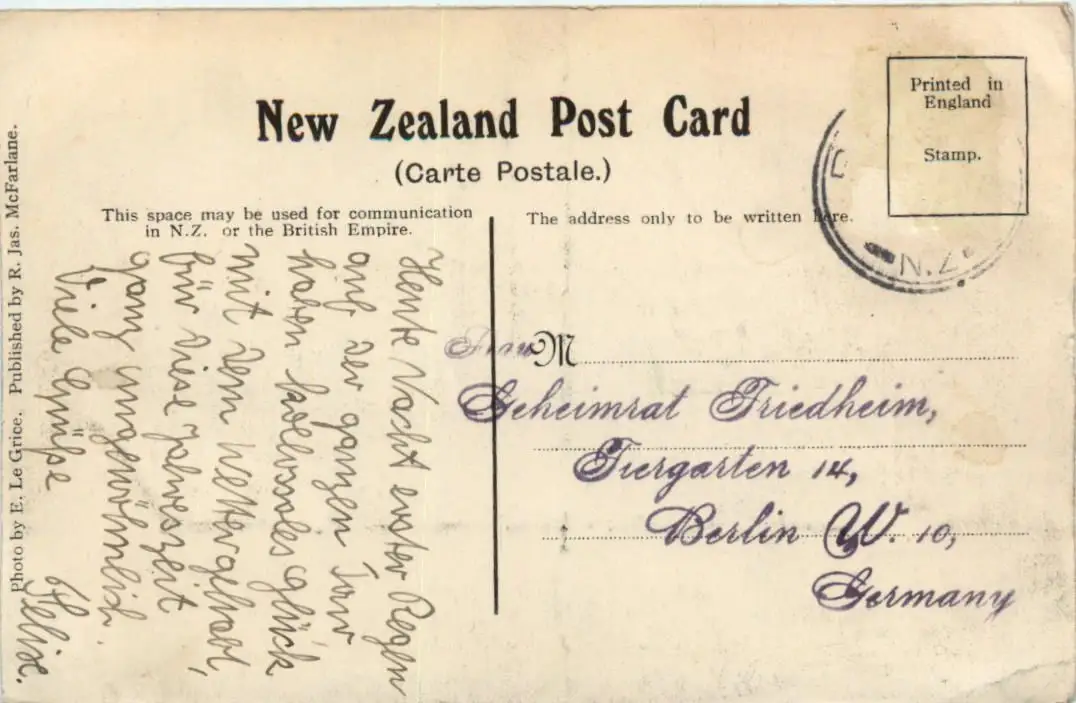 New Zealand Post Card
(Carte Postale.)
Printed in
England
Stamp.
This space may be used for communication
in N.Z. or the British Empire.
The address only to be written here.
N.Z.
Heute Nacht erster Regen
auf der ganzen Tour
haben kolossales Glück
mit dem Wetter gehabt,
für diese Jahreszeit
ganz ungewöhnlich.
Viele Grüße
Felix.
Frau M
Geheimrat Friedheim,
Tiergarten 14,
Berlin W. 10,
Germany
Photo by E. Le Grice. Published by R. Jas. McFarlane.